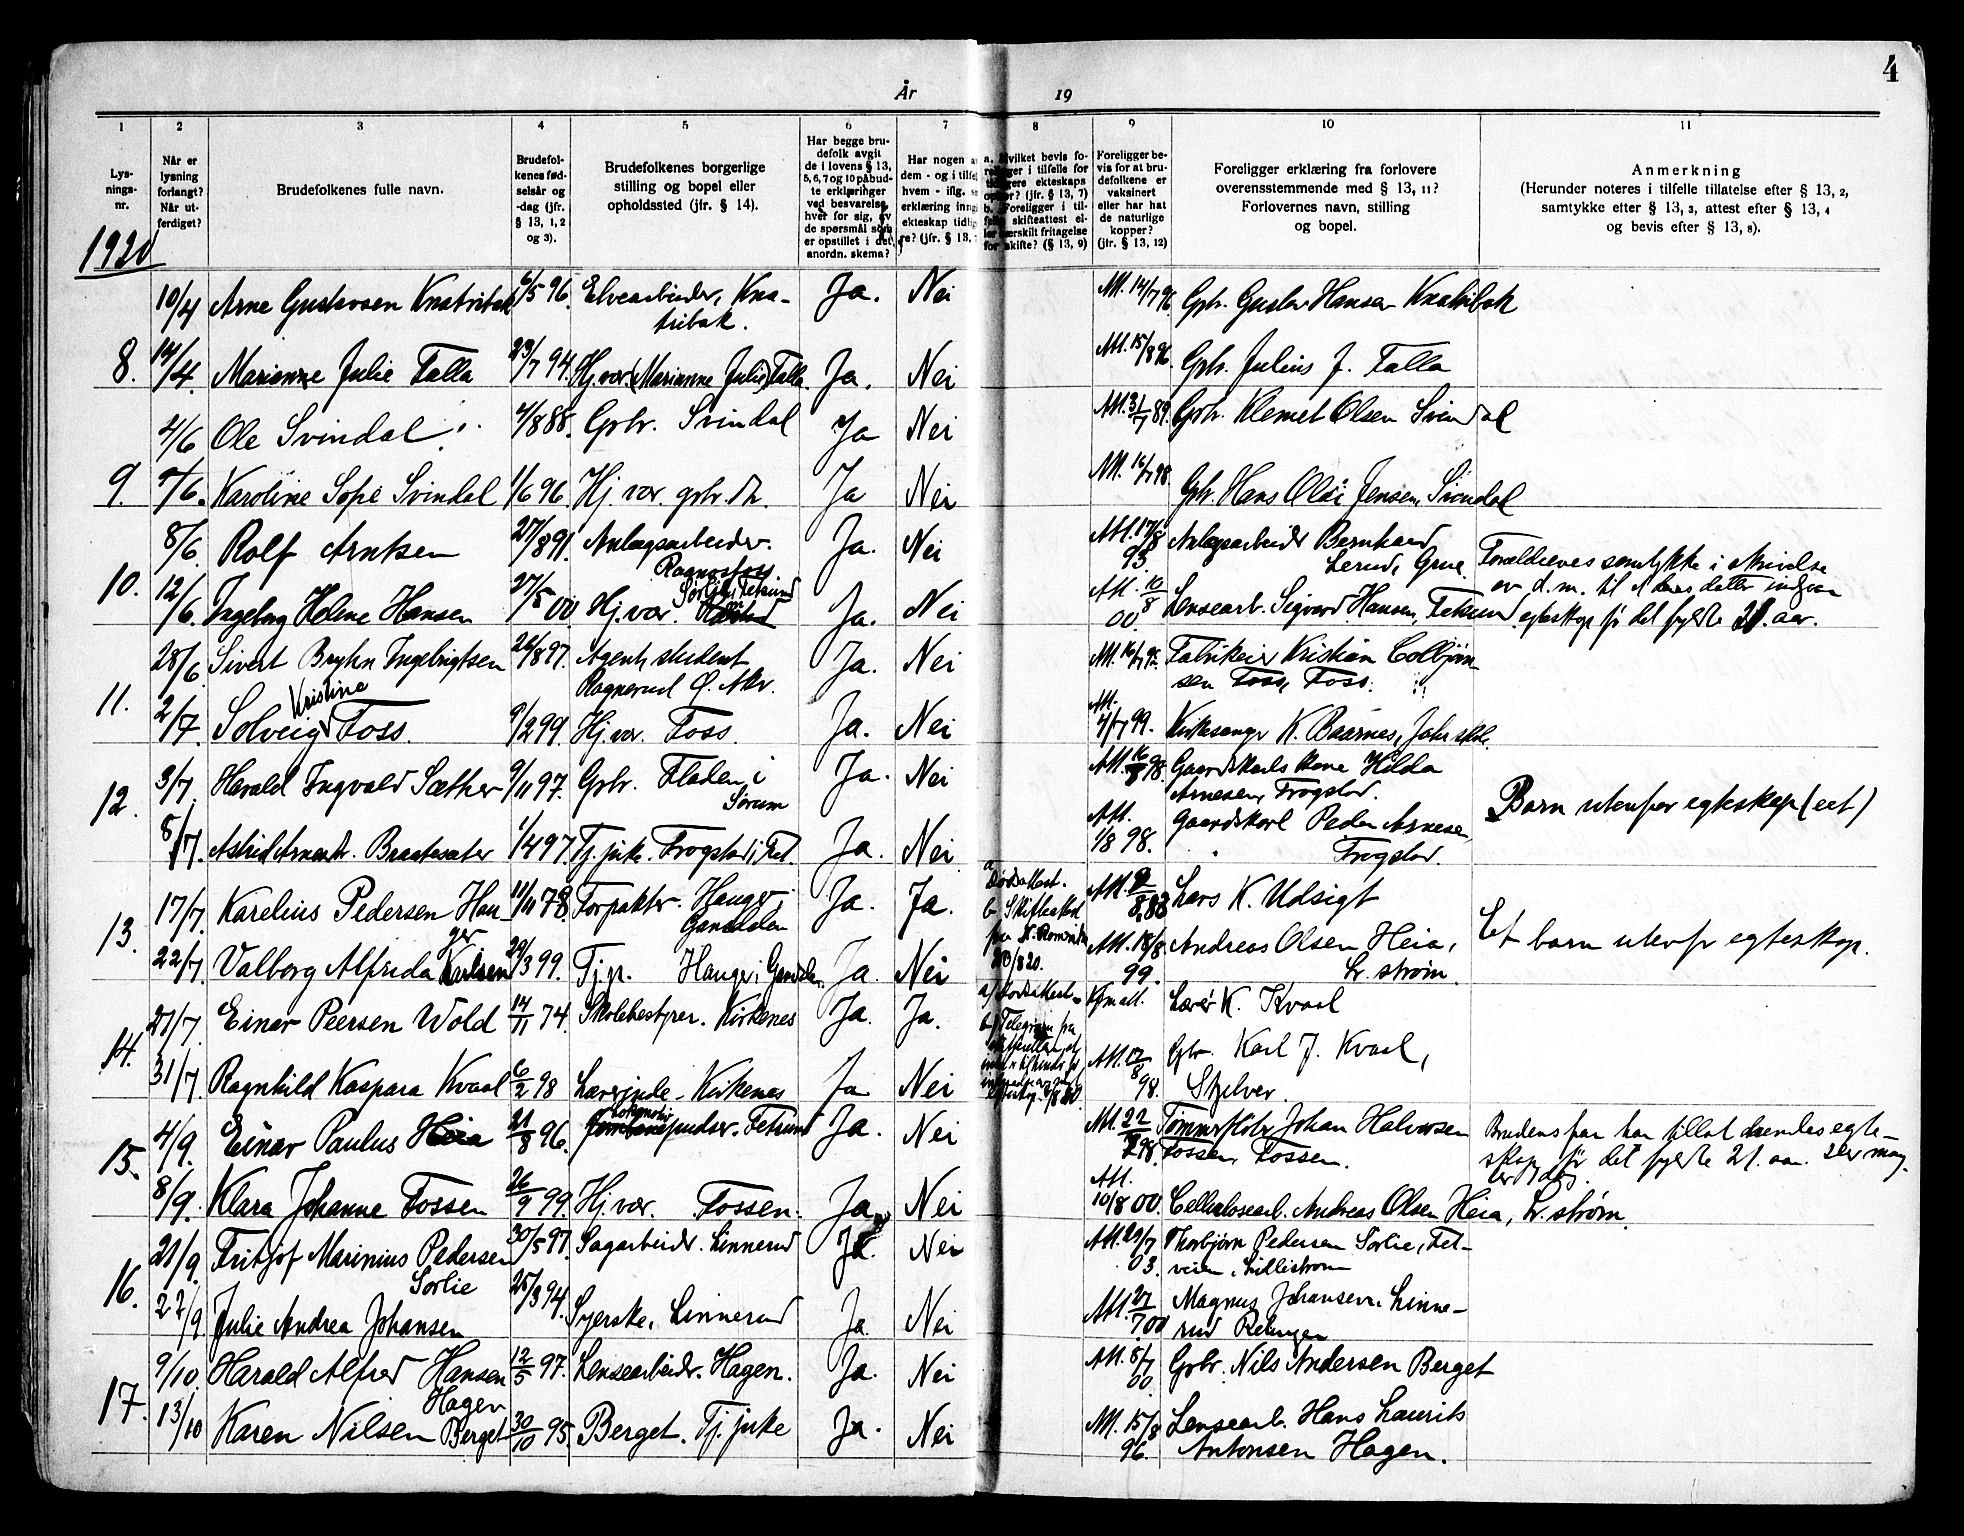 4
År 19
1 2 3 4 5 6 7 8 9 10 11
Lys-
nings-
nr.
Når er
lysning
forlangt?
Når ut-
ferdiget?
Brudefolkenes fulle navn.
Brudefol-
kenes fød-
selsår og
-dag (jfr.
§ 13, 1, 2
og 3).
Brudefolkenes borgerlige
stilling og bopel eller
opholdssted (jfr. § 14).
Har begge bru-
defolk avgit
de i lovens § 13,
5, 6, 7 og 10 påbud-
te erklæringer
ved besvarelse
hver for sig, av
de spørsmål som
er opstillet i det
anordn. skema?
Har nogen a
dem - og i tilfel
hvem - iflg. s
erklæring inng
ekteskap tidlig
re? (jfr. § 13,
a. Hvilket bevis fo-
religger i tilfelle for
tidligere ekteskaps
ophør? (jfr. § 13, 7)
b. Foreligger i til-
felle skifteattest el-
ler særskilt fritagelse
for skifte? (§ 13, 9)
Foreligger be-
vis for at bru-
defolkene er
vaksinert
eller har hat
de naturlige
kopper?
(jfr. § 13, 12)
Foreligger erklæring fra forlovere
overensstemmende med § 13, 11?
Forlovernes navn, stilling
og bopel.
Anmerkning
(Herunder noteres i tilfelle tillatelse efter § 13, 2,
samtykke efter § 13, 3, attest efter § 13, 4
og bevis efter § 13, 8).
1920
10/4 Arne Gustavsen Knatribak 6/5 96. Elvearbeider, Kna-
tribak. Ja. Nei Att. 14/7 96 Gbr. Gustav Hansen Knatribak
8. 14/4. Marianne Julie Falla 23/7 94. Hj. vær. (Marianne Julie) Falla Ja. Nei Att. 15/8 96. Gbr. Julius J. Falla
4/6 Ole Svindal 4/8 88. Gbr. Svindal Ja Nei Att. 31/7 89. Gbr. Klemet Olsen Svindal
9. 7/6. Karoline Sofie Svindal 1/6 96 Hj. vær. gbr. dt. Ja Nei Att. 16/7 98. Gbr. Hans Olai Jensen, Svindal
8/6 Rolf Arntsen 27/8 91. Anlægsarbeider.
Ragnosfoss Ja. Nei Att. 17/8
93. Anlægsarbeider Bernhard
Lerud, Grue. Forældrenes samtykke i skrivelse
av d.m. til deres datter indgaa
10. 12/6. Ingeborg Helene Hansen 27/5 00 Hj. vær. Sørli, Fetsund Ja. Nei Att. 10/8
00. Lensearb. Sigvard Hansen, Fetsund egteskap før det fyldte 21. aar.
28/6 Sivert Bryhn Ingebrigtsen 26/8 97. Agent, student
Ragnerud Ø. Aker. Ja. Nei Att. 16/7 95. Fabrikeier Kristian Colbjørn-
sen Foss, Foss.
11. 2/7. Solveig Kristine Foss. 9/2 99. Hj. vær. Foss. Ja. Nei Att.
4/7 99. Kirkesanger K. Baarnes, Jahr skole.
3/7 Harald Ingvald Sæther 9/11 97. Gbr. Fladen i
Sørum Ja. Nei Att. 16/8 98. Gaardskarls kone Hilda
Arnesen, Frogstad.
12. 8/7. Astrid Arnesdtr. Braatesæter 1/4 97. Tj. pike. Frogstad i Fet. Ja. Nei Att.
1/8 98. Gaardskarl Peder Arnesen,
Frogstad. Barn utenfor egteskap (eet)
17/7 Karelius Pedersen Hau-
ger 11/11 78. Forpakter. Hauger
Gansdalen Ja. Ja. a
Dødsattest.
b. Skifteattest
fra N. Romerike
20/8 20. Att. 9/8 83 Lars K. Udsigt
13. 22/7 Valborg Alfrida Karlsen 29/3 99. Tjp. Hauger i Gansdalen. Ja. Nei Att. 18/8
99. Andreas Olsen Heia,
Lr. strøm. Et barn utenfor egteskap.
27/7 Einar Peersen Wold 14/11 74. Skolebestyrer. Kirkenes Ja. Ja. a) Dødsattest.
b) Telegram fra Kfm att. Lærer K. Kvaal
14. 31/7 Ragnhild Kaspara Kvaal 6/2 98 Lærerinde - Kirkenes Ja Nei Att. 12/8
98. Gbr. Karl J. Kvaal,
Stjelver.
4/9 Einar Paulus Heia 21/8 96. Lokomotivpudser. Fetsund Ja. Nei Att. 22/7 98. Tømmerfløter Johan Halvorsen
Fossen, Fossen. Brudens far har tillat dereds egte-
skap før det fyldte 21. aar.
15. 8/9. Klara Johanne Fossen 26/9 99. Hj. vær. Fossen. Ja Nei Att.
10/8 00. Cellulosearb. Andreas Olsen Heia, Lr. strøm.
21/9. Fritjof Marinius Pedersen
Sørlie 30/5 97. Sagarbeider. Linnerud Ja. Nei Att. 29/7
03. Thorbjørn Pedersen Sørlie, Fet-
veien, Lillestrøm
16. 22/9 Julie Andrea Johansen 25/3 94. Syerske, Linnerud Ja. Nei Att. 27/7 00 Magnus Johansen, Linne-
rud Rælingen
9/10. Harald Alfred Hansen
Hagen 12/5 97. Lensearbeider. Hagen. Ja. Nei Att. 8/7
00. Gbr. Nils Andersen Berget
17. 13/10 Karen Nilsen Berget 30/10 95. Berget. Tj. pike Ja. Nei Att. 15/8
96. Lensearb. Hans Laurits
Antonsen Hagen.